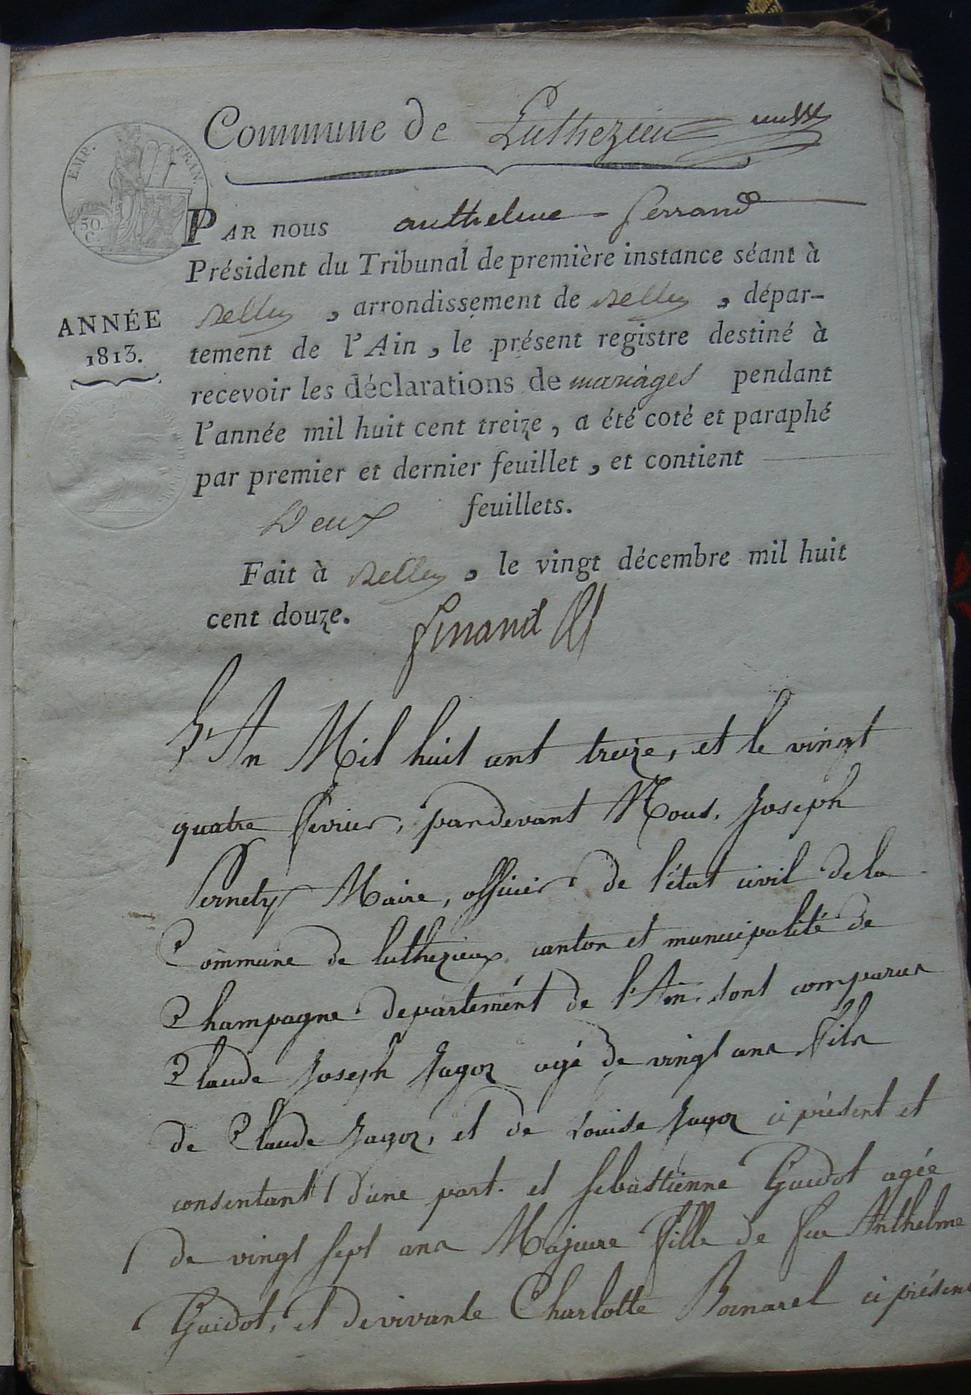 Commune de Luthezieu
EMP. FRAN.
50 C.
PAR nous anthelme Ferrand
Président du Tribunal de première instance séant à
Belley, arrondissement de Belley, dépar-
tement de l'Ain, le présent registre destiné à
recevoir les déclarations de mariages pendant
l'année mil huit cent treize, a été coté et paraphé
par premier et dernier feuillet, et contient
Deux feuillets.
Fait à Belley, le vingt décembre mil huit
cent douze.
ANNÉE
1813.
L'An Mil huit cent treize, et le vingt
quatre fevrier, pardevant Nous, Joseph
Pernety Maire, officier de l'état civil de la
Commune de luthezieux canton et municipalité de
Champagne departement de l'Ain, sont comparus
Claude Joseph Jagoz agé de vingt ans Fils
de Claude Jagoz, et de Louise Jagoz ci présent et
consentant d'une part. et sebastienne Guidot agée
de vingt sept ans Majeure Fille de feu Anthelme
Guidot, et de vivante Charlotte Bonarel ci présen